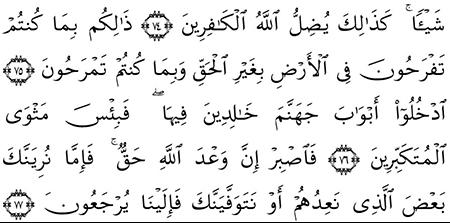 شَيْـًٔا ۚ كَذَٰلِكَ يُضِلُّ ٱللَّهُ ٱلْكَـٰفِرِينَ ﴿٧٤﴾ ذَٰلِكُم بِمَا كُنتُمْ
تَفْرَحُونَ فِى ٱلْأَرْضِ بِغَيْرِ ٱلْحَقِّ وَبِمَا كُنتُمْ تَمْرَحُونَ ﴿٧٥﴾
ٱدْخُلُوٓا۟ أَبْوَٰبَ جَهَنَّمَ خَـٰلِدِينَ فِيهَا ۖ فَبِئْسَ مَثْوَى
ٱلْمُتَكَبِّرِينَ ﴿٧٦﴾ فَٱصْبِرْ إِنَّ وَعْدَ ٱللَّهِ حَقٌّ ۚ فَإِمَّا نُرِيَنَّكَ
بَعْضَ ٱلَّذِى نَعِدُهُمْ أَوْ نَتَوَفَّيَنَّكَ فَإِلَيْنَا يُرْجَعُونَ ﴿٧٧﴾